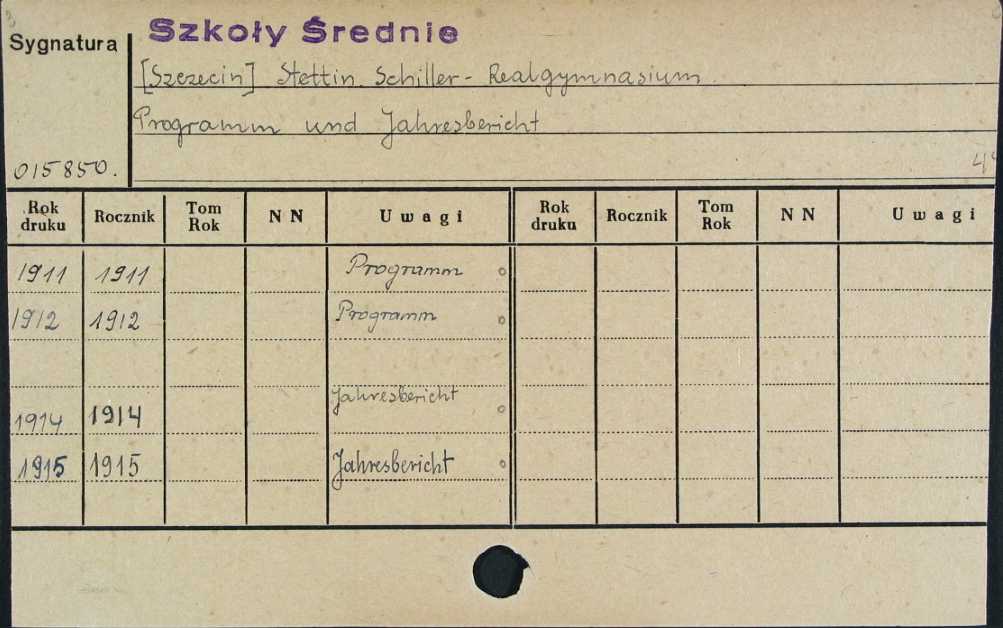 Szkoły Średnie
Sygnatura
[Szczecin] Stettin. Schiller-Realgymnasium
Programm und Jahresbericht
015850.
Rok druku Rocznik Tom Rok NN Uwagi Rok druku Rocznik Tom Rok NN Uwagi
1911 1911 Programm
1912 1912 Programm
1914 1914 Jahresbericht
1915 1915 Jahresbericht